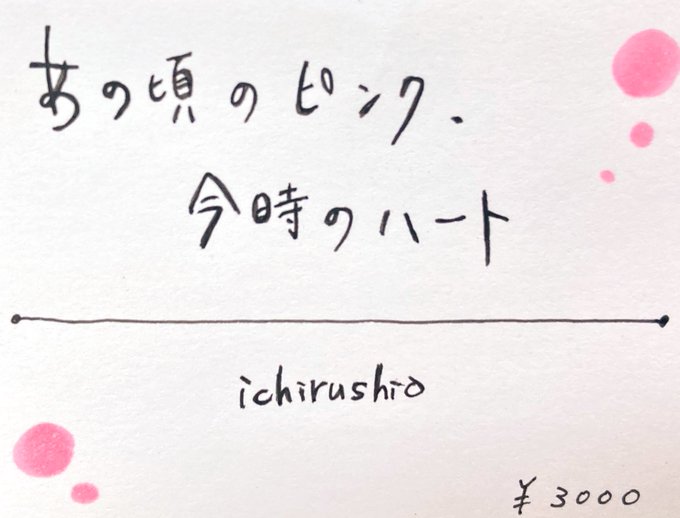 あの頃のピンク.
今時のハート
ichirushio
¥3000